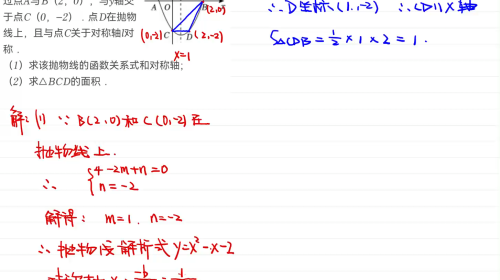 过点A与B（2，0），与y轴交
于点C（0，−2）．点D在抛物
线上，且与点C关于对称轴l对
称．
（1）求该抛物线的函数关系式和对称轴;
（2）求△BCD的面积．
A O B (2,0)
(0,-2) C D (2,-2)
x=1
∴D坐标(1,-2) ∴CD∥X轴
S△CDB=½×1×2=1.
解:(1) ∵B(2,0)和C(0,-2)在
抛物线上.
∴ {4-2m+n=0
n=-2
解得: m=1. n=-2
∴抛物线解析式 y=x²-x-2